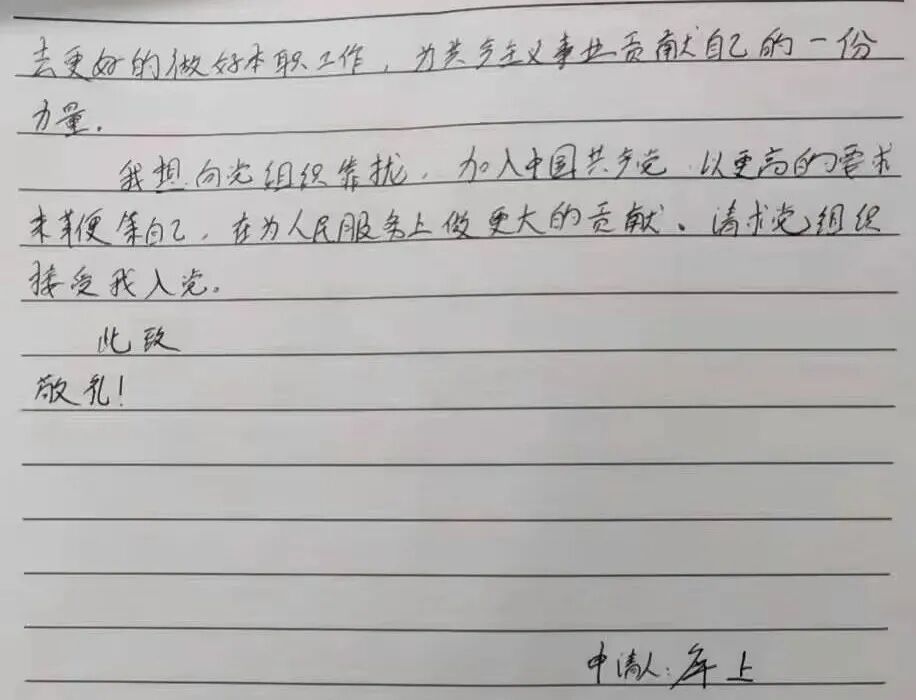 去更好的做好本职工作，为共产主义事业贡献自己的一份
力量.
我想向党组织靠拢，加入中国共产党 以更高的要求
来鞭策自己，在为人民服务上做更大的贡献。请求党组织
接受我入党。
此致
敬礼！
申请人: 上